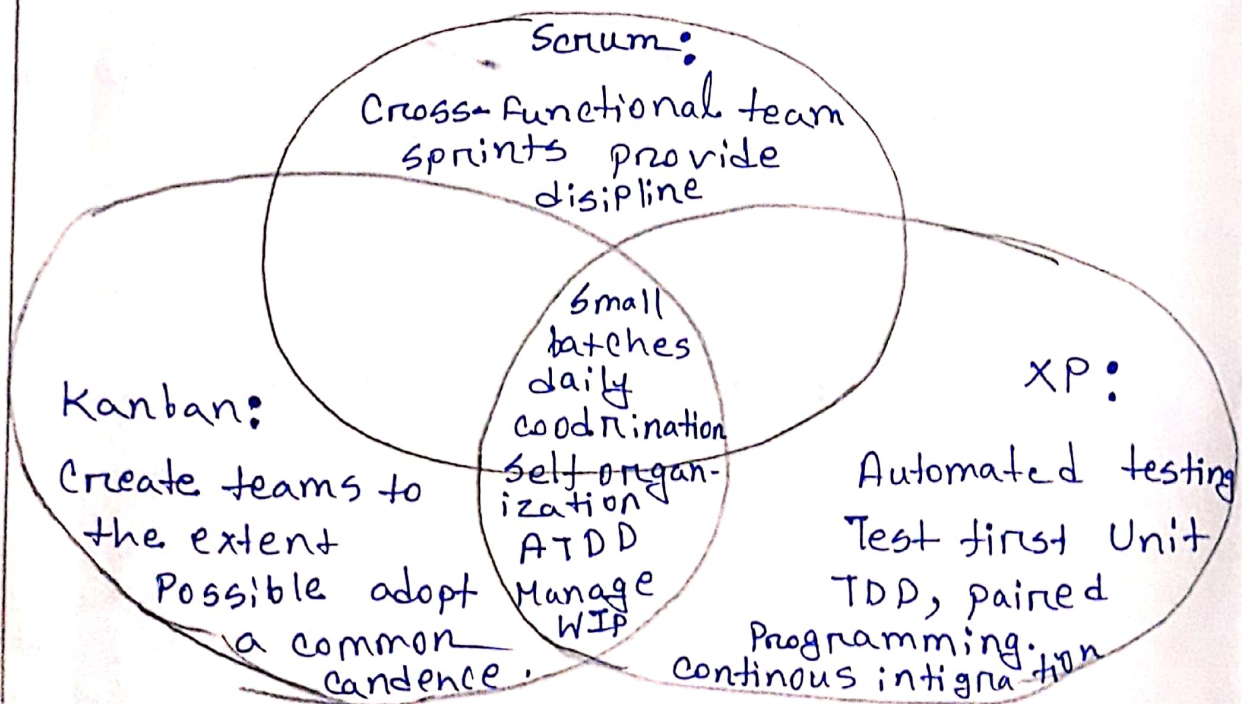 Scrum:
Cross-functional team
sprints provide
disipline
Small
batches
daily
coodrination
Self-organ-
ization
ATDD
Manage
WIP
Kanban:
Create teams to
the extent
Possible adopt
a common
candence.
XP:
Automated testing
Test first Unit
TDD, paired
Programming.
continous intigration